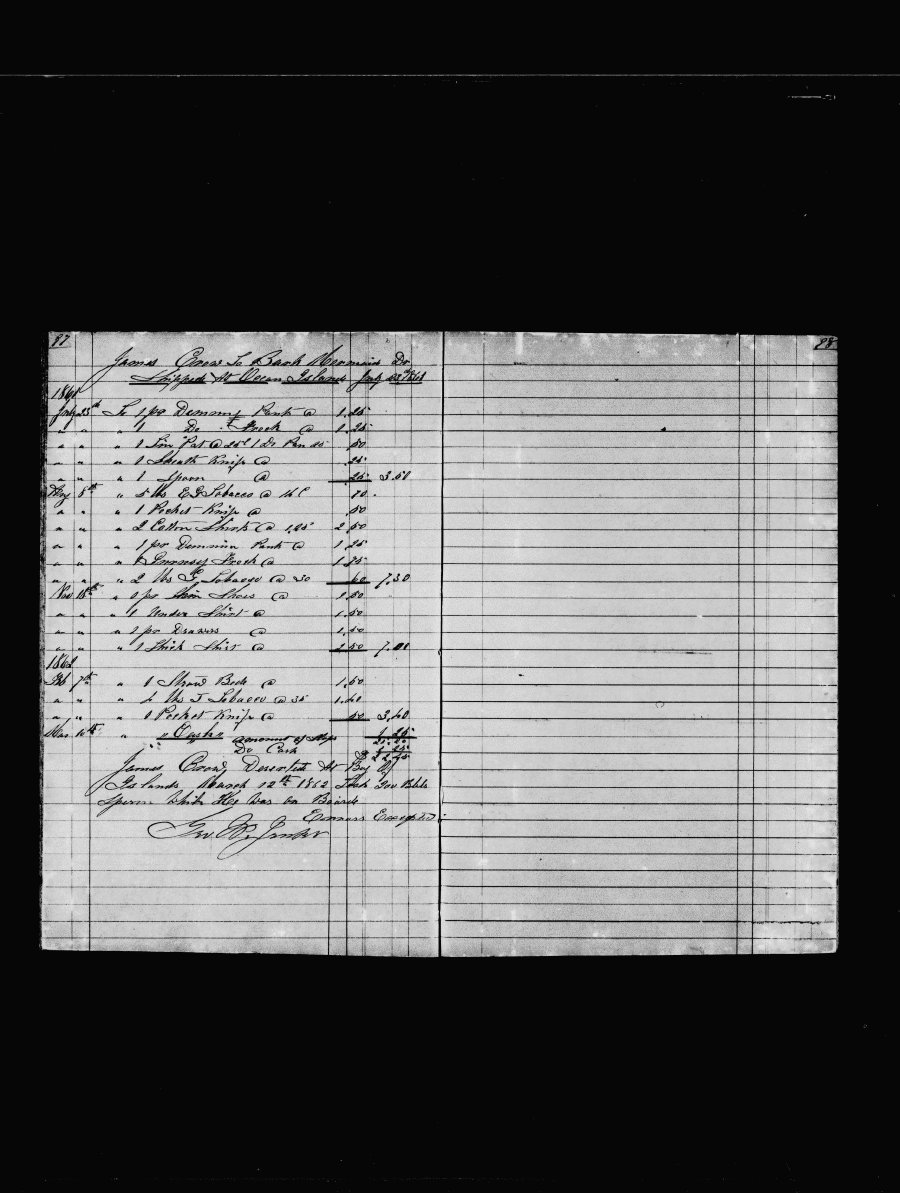 87
88
James Crow To Bark Mermaid Dr
Shipped At Ocean Islands July 23 1861
1861
July 23th To 1 pr Demmy Pants @ 1.25
" " " 1 Do Frock @ 1.25
" " " 1 Tin Pot @ 25c 1 Do Pan 25 .50
" " " 1 Sheath Knife @ .25
" " " 1 Spoon @ .25 3.50
8th " 5 lbs E G Tobacco @ 16c .80
" " " 1 Pocket Knife @ .50
" " " 2 Cotton Shirts @ 1,25 2.50
" " " 1 pr Demmin Pants @ 1.25
" " " 1 Gurnsey Frock @ 1.75
" " " 2 lbs Tobacco @ 30 .60 7,30
Nov 18th " 1 pr Shoes @ 1.50
" " " 1 Under Shirt @ 1.50
" " " 1 pr Drawers @ 1.50
" " " 1 Thick Shirt @ 2.50 7.00
1862
Feb 7th " 1 Straw Bed @ 1.50
" " " 4 lbs Tobacco @ 35 1.40
" " " 1 Pocket Knife @ .50 3,40
Mar 10th " " Cash " 1.25
amount of Slops
Do Cash 1.25
James Crow Deserted At Bay of
Islands March 12th 1862 Took Bbls
Sperm While He Was on Board
Errors Excepted
Geo